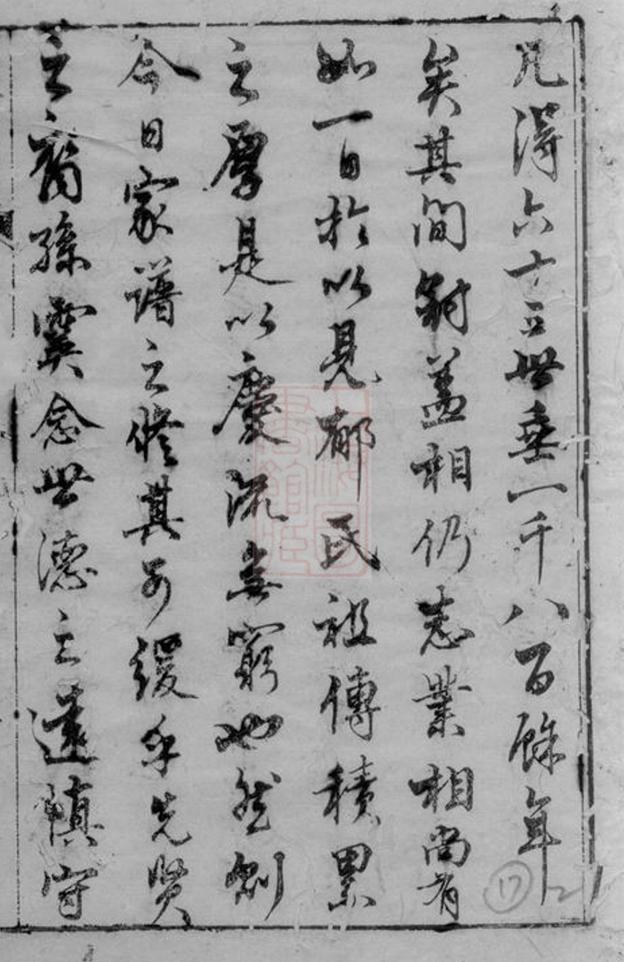 凡得六十三世垂一千八百餘年
矣其間冠蓋相仍志業相尚有
如一日於以見郁氏祖傳積累
之厚是以慶流無窮也然則
今日家譜之修其可緩乎先賢
之裔孫冀念世德之遠慎守
17